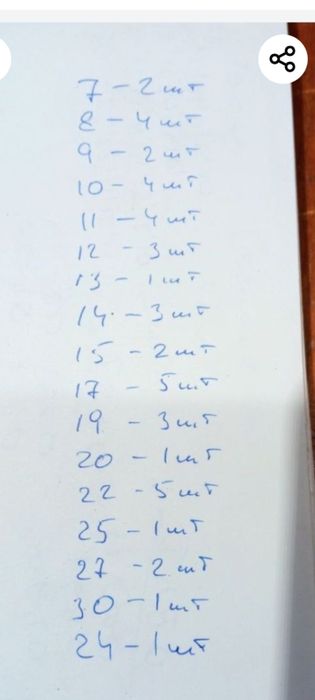 7 - 2 шт
8 - 4 шт
9 - 2 шт
10 - 4 шт
11 - 4 шт
12 - 3 шт
13 - 1 шт
14 - 3 шт
15 - 2 шт
17 - 5 шт
19 - 3 шт
20 - 1 шт
22 - 5 шт
25 - 1 шт
27 - 2 шт
30 - 1 шт
24 - 1 шт